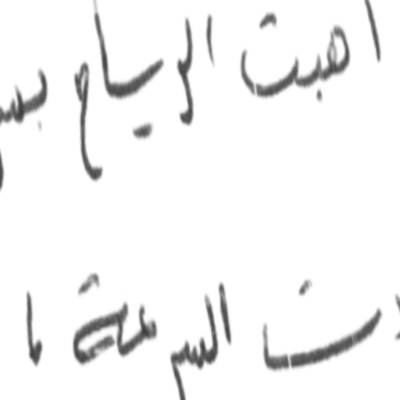 اهبت الرياح بس
ت السرعة ما